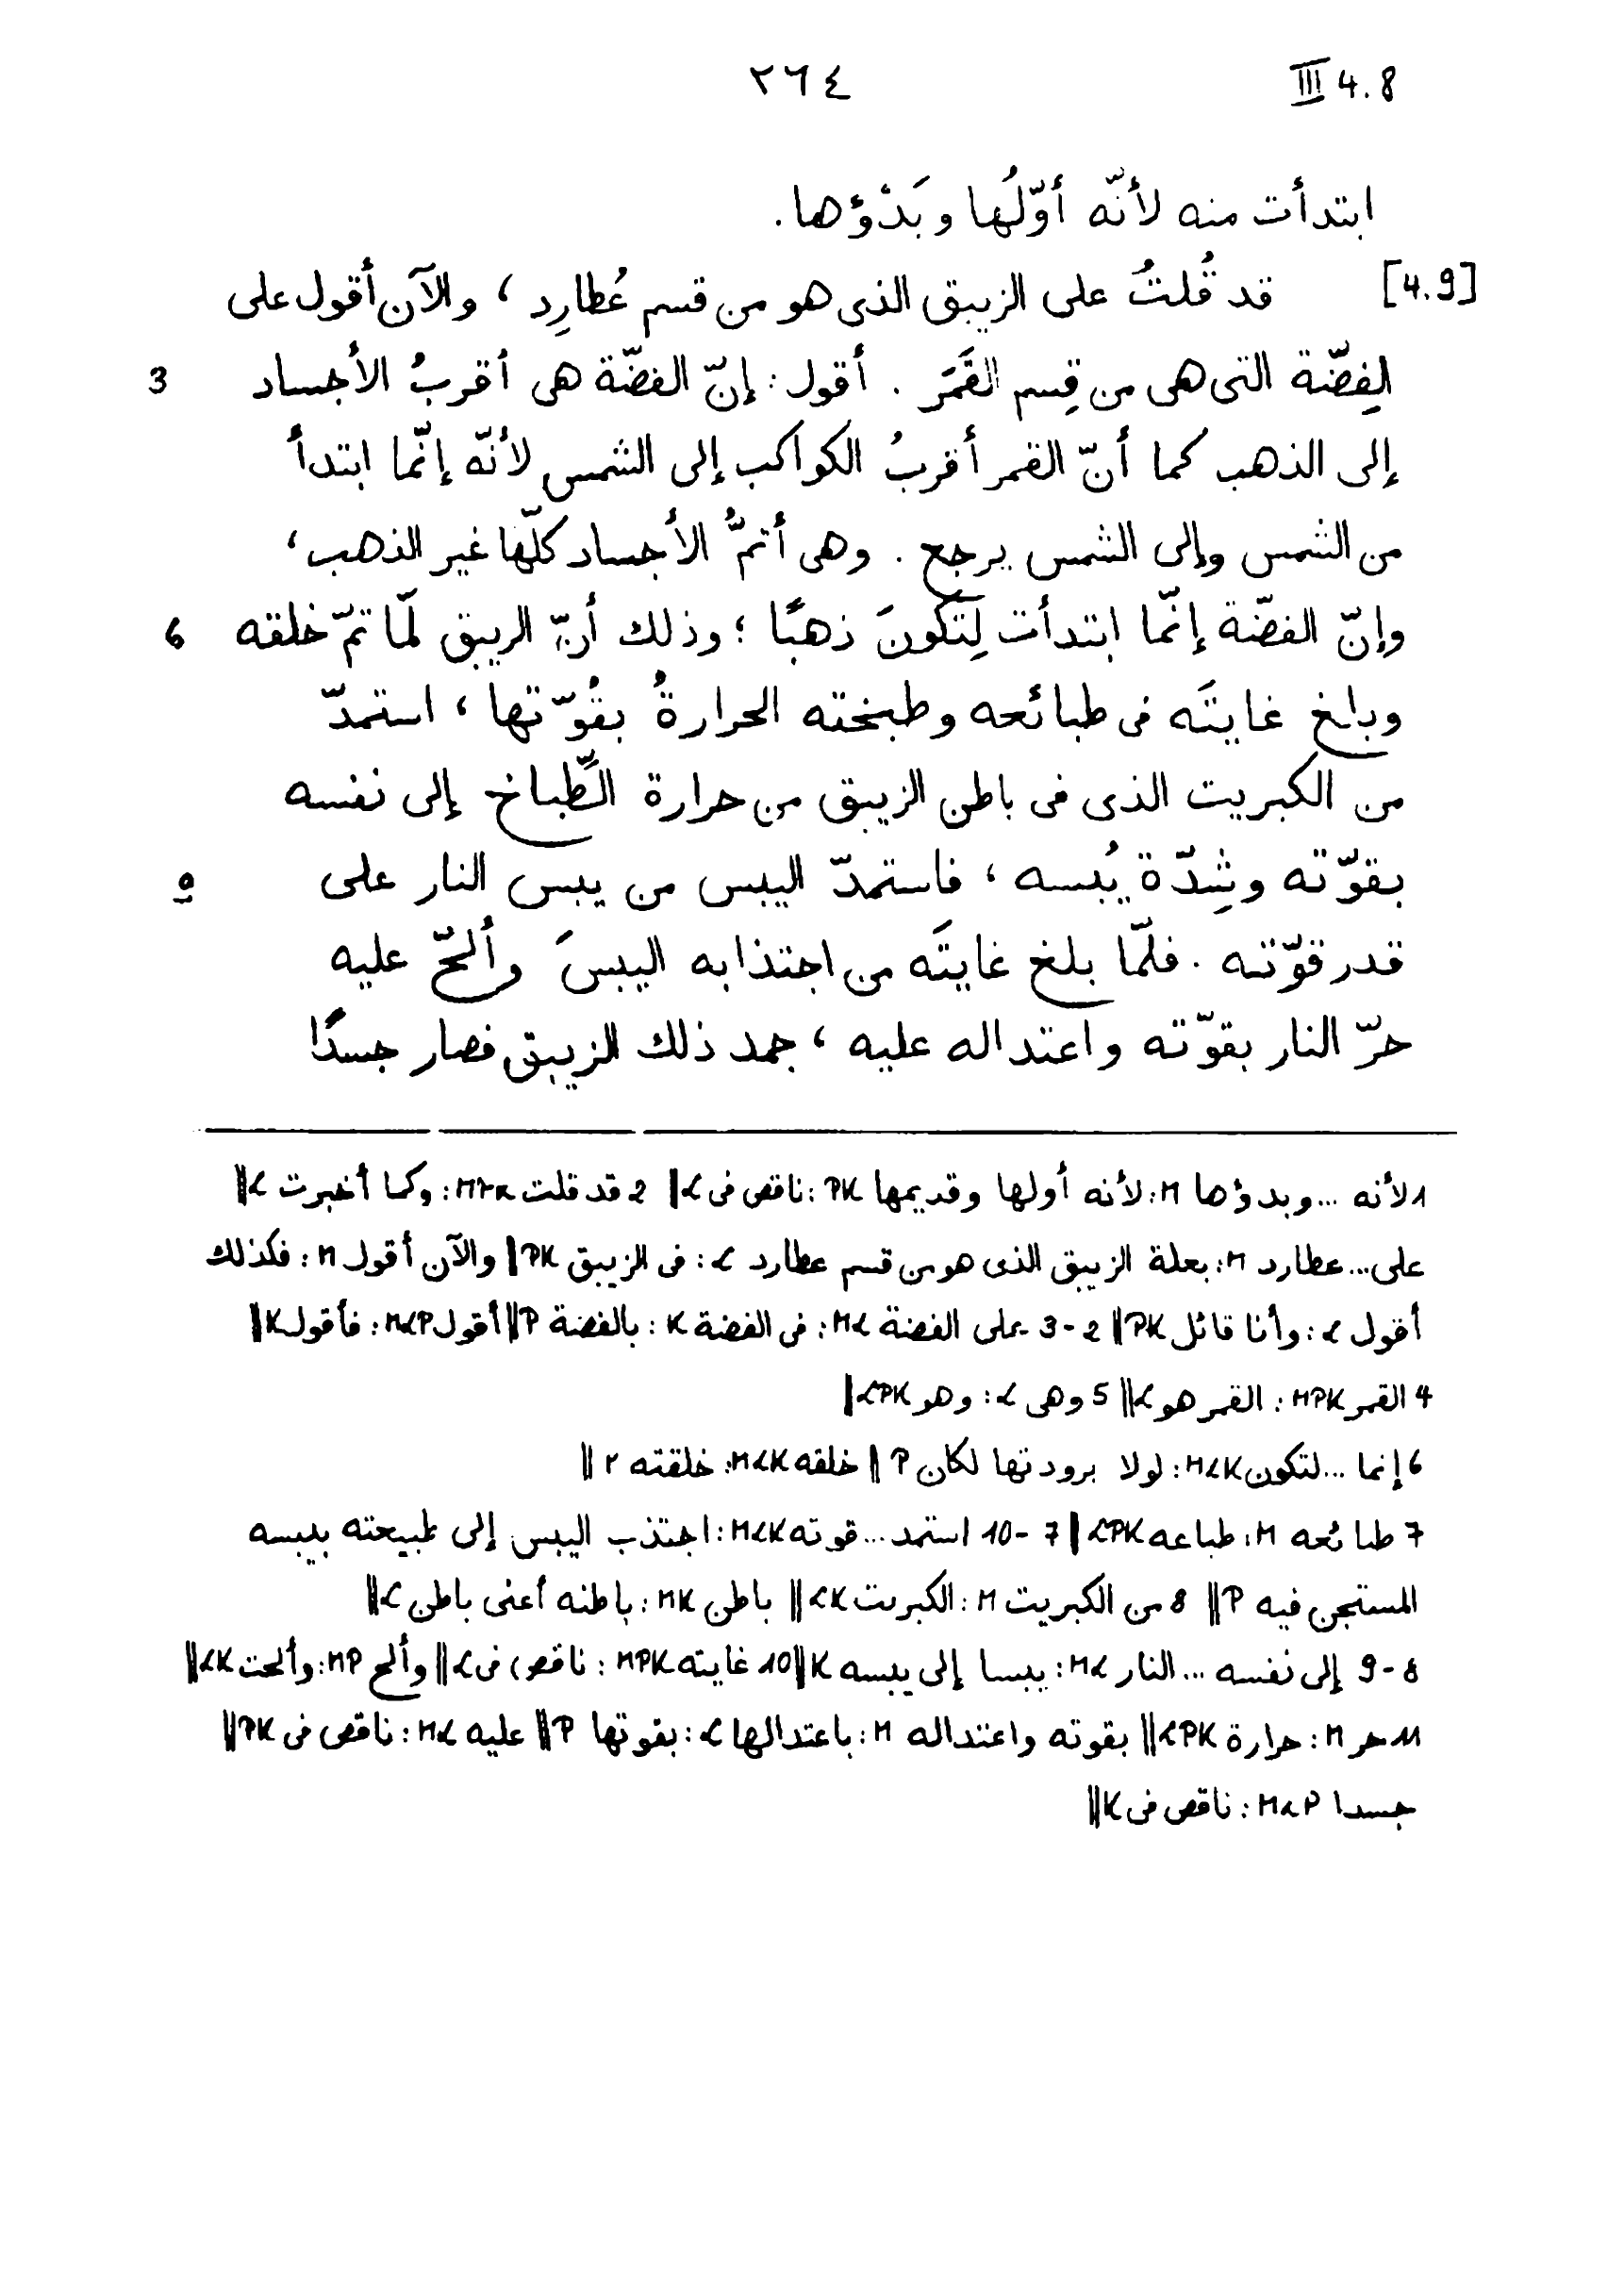 ٢٦٤ III 4.8
ابتدأت منه لأنّه أوّلُها وبَدْؤها.
[4.9] قد قُلتُ على الزيبق الذى هو من قسم عُطارِد ، والآن أقول على
3 الفِضّة التى هى من قِسم القَمَر . أقول : إنّ الفضّة هى أقربُ الأجساد
إلى الذهب كما أنّ القمر أقربُ الكواكب إلى الشمس لأنّه إنّما ابتدأ
من الشمس وإلى الشمس يرجع . وهى أتمُّ الأجساد كلّها غير الذهب ،
6 وإنّ الفضّة إنّما ابتدأت لِتَكونَ ذهبًا ؛ وذلك أنّ الزيبق لمّا تمّ خلقه
وبلغ غايتَه فى طبائعه وطبخته الحرارةُ بقُوّتها ، استمدّ
من الكبريت الذى فى باطن الزيبق من حرارة الطِّباخ إلى نفسه
9 بقوّته وشِدّة يُبسه ، فاستمدّ اليبس من يبس النار على
قدر قوّته . فلمّا بلغ غايتَه من اجتذابه اليبسَ وألحّ عليه
حرّ النار بقوّته واعتداله عليه ، جمد ذلك الزيبق فصار جسدًا
1 لأنه ... وبدؤها M : لأنه أولها وقديمها PK : ناقص فى L ‖ 2 قد قلت MPK : وكما أخبرت L ‖
على ... عطارد M : بعلة الزيبق الذى هو من قسم عطارد L : فى الزيبق PK ‖ والآن أقول M : فكذلك
أقول L : وأنا قائل PK ‖ 2-3 على الفضة ML : فى الفضة K : بالفضة P ‖ أقول MLP : فأقول K ‖
4 القمر MPK : القمر هو L ‖ 5 وهى L : وهو LPK ‖
6 إنما ... لتكون MLK : لولا برودتها لكان P ‖ خلقه MLK : خلقته P ‖
7 طبائعه M : طباعه LPK ‖ 7-10 استمد ... قوته MLK : اجتذب اليبس إلى طبيعته بيبسه
المستجن فيه P ‖ 8 من الكبريت M : الكبريت LK ‖ باطن MK : باطنه أعنى باطن L ‖
8-9 إلى نفسه ... النار ML : يبسا إلى يبسه K ‖ 10 غايته MPK : ناقص فى L ‖ وألح MP : وألحت LK ‖
11 حر M : حرارة LPK ‖ بقوته واعتداله M : باعتدالها L : بقوتها P ‖ عليه ML : ناقص فى PK ‖
جسدا MLP : ناقص فى K ‖